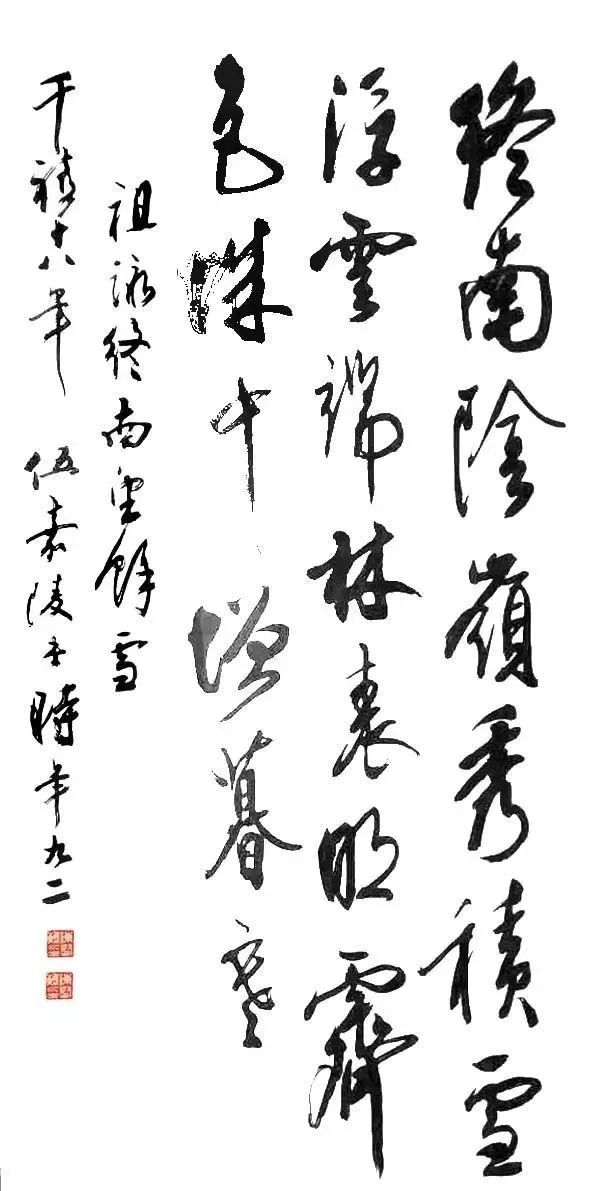 終南陰嶺秀積雪
浮雲端林表明霽
色城中增暮寒
祖詠終南望餘雪
千禧十八年 伍嘉陵书時年九二